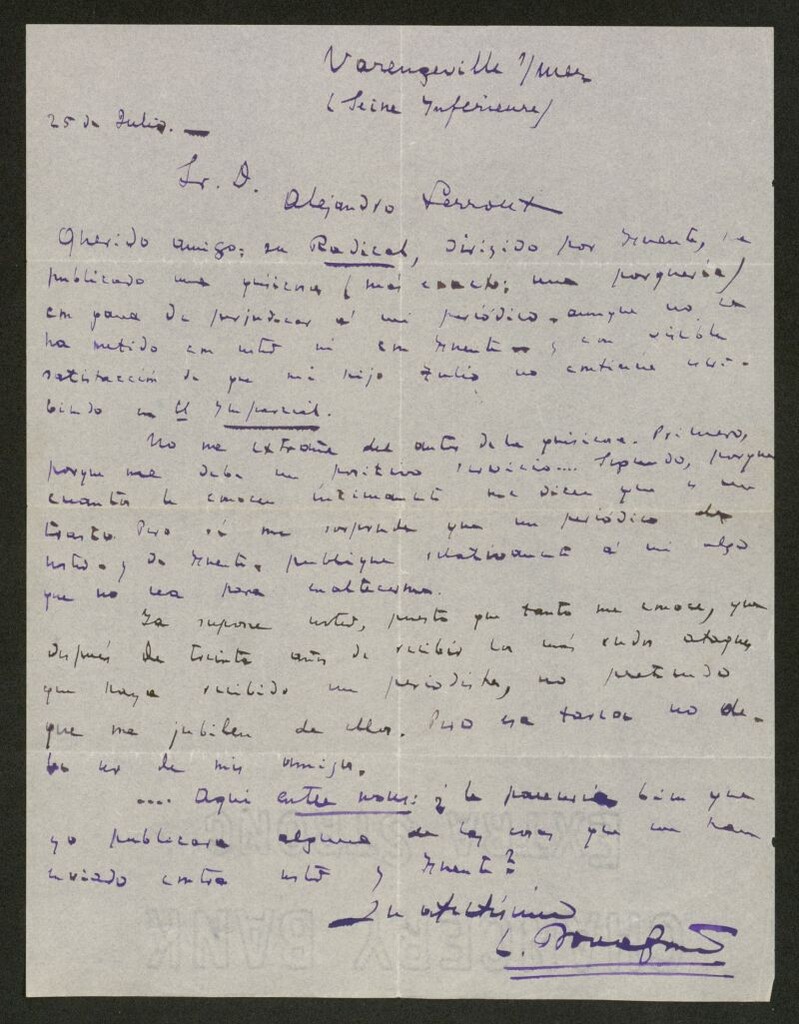 Varengeville s/mer
(Seine Inférieure)
25 de Julio. —
Sr. D.
Alejandro Lerroux
Querido amigo: su Radical, dirigido por Fuente, ha
publicado una quisicosa (más exacto: una porquería)
con gana de perjudicar á mi periódico - aunque no la
ha metido con usted ni con Fuente - y con visible
satisfacción de que mi hijo Julio no continúe escri-
biendo en El Imparcial.
No me extraña del autor de la quisicosa. Primero,
porque me debe un positivo servicio.... Segundo, porque
cuantos le conocen íntimamente me dicen que es un
trasto. Pero sí me sorprende que un periódico de
usted - y de Fuente - publique relativamente á mi algo
que no sea para enaltecerme.
Ya supone usted, puesto que tanto me conoce, que
después de treinta años de recibir los más rudos ataques
que haya recibido un periodista, no pretendo
que me jubilen de ellos. Pero esa tarea no de-
be ser de mis amigos.
.... Aquí entre nous: ¿le parecería bien que
yo publicara alguna de las cosas que me han
enviado contra usted y Fuente?
Su afectísimo
L. Bonafoux
EXTRA STRONG
BANK